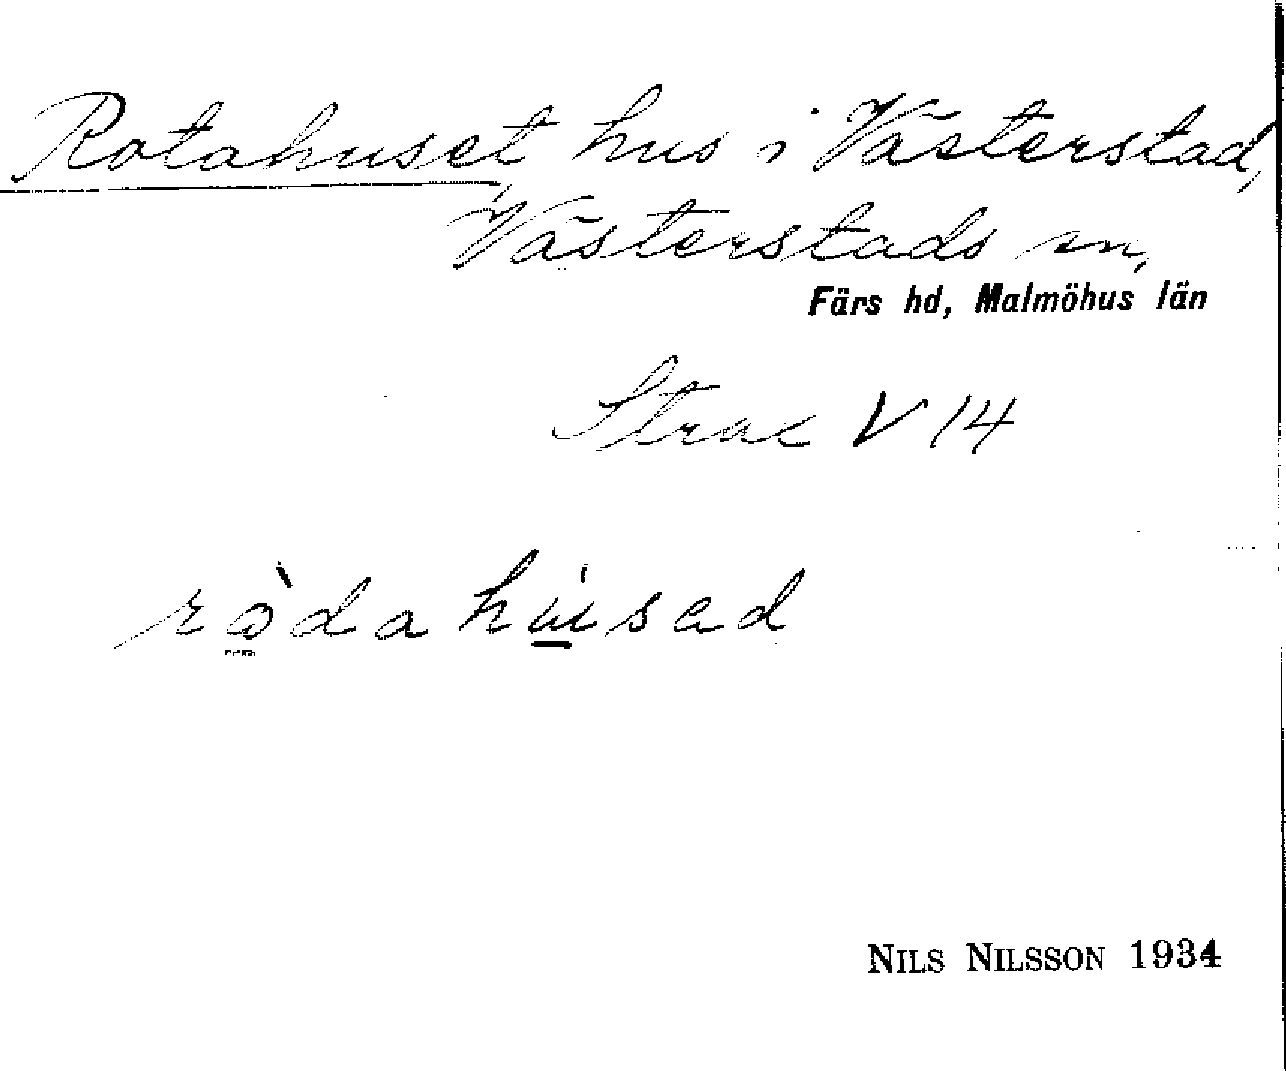 Rotahuset, hus i Västerstad,
Västerstads sn,
Färs hd, Malmöhus län
V 14
rò̤dahúsad
NILS NILSSON 1934